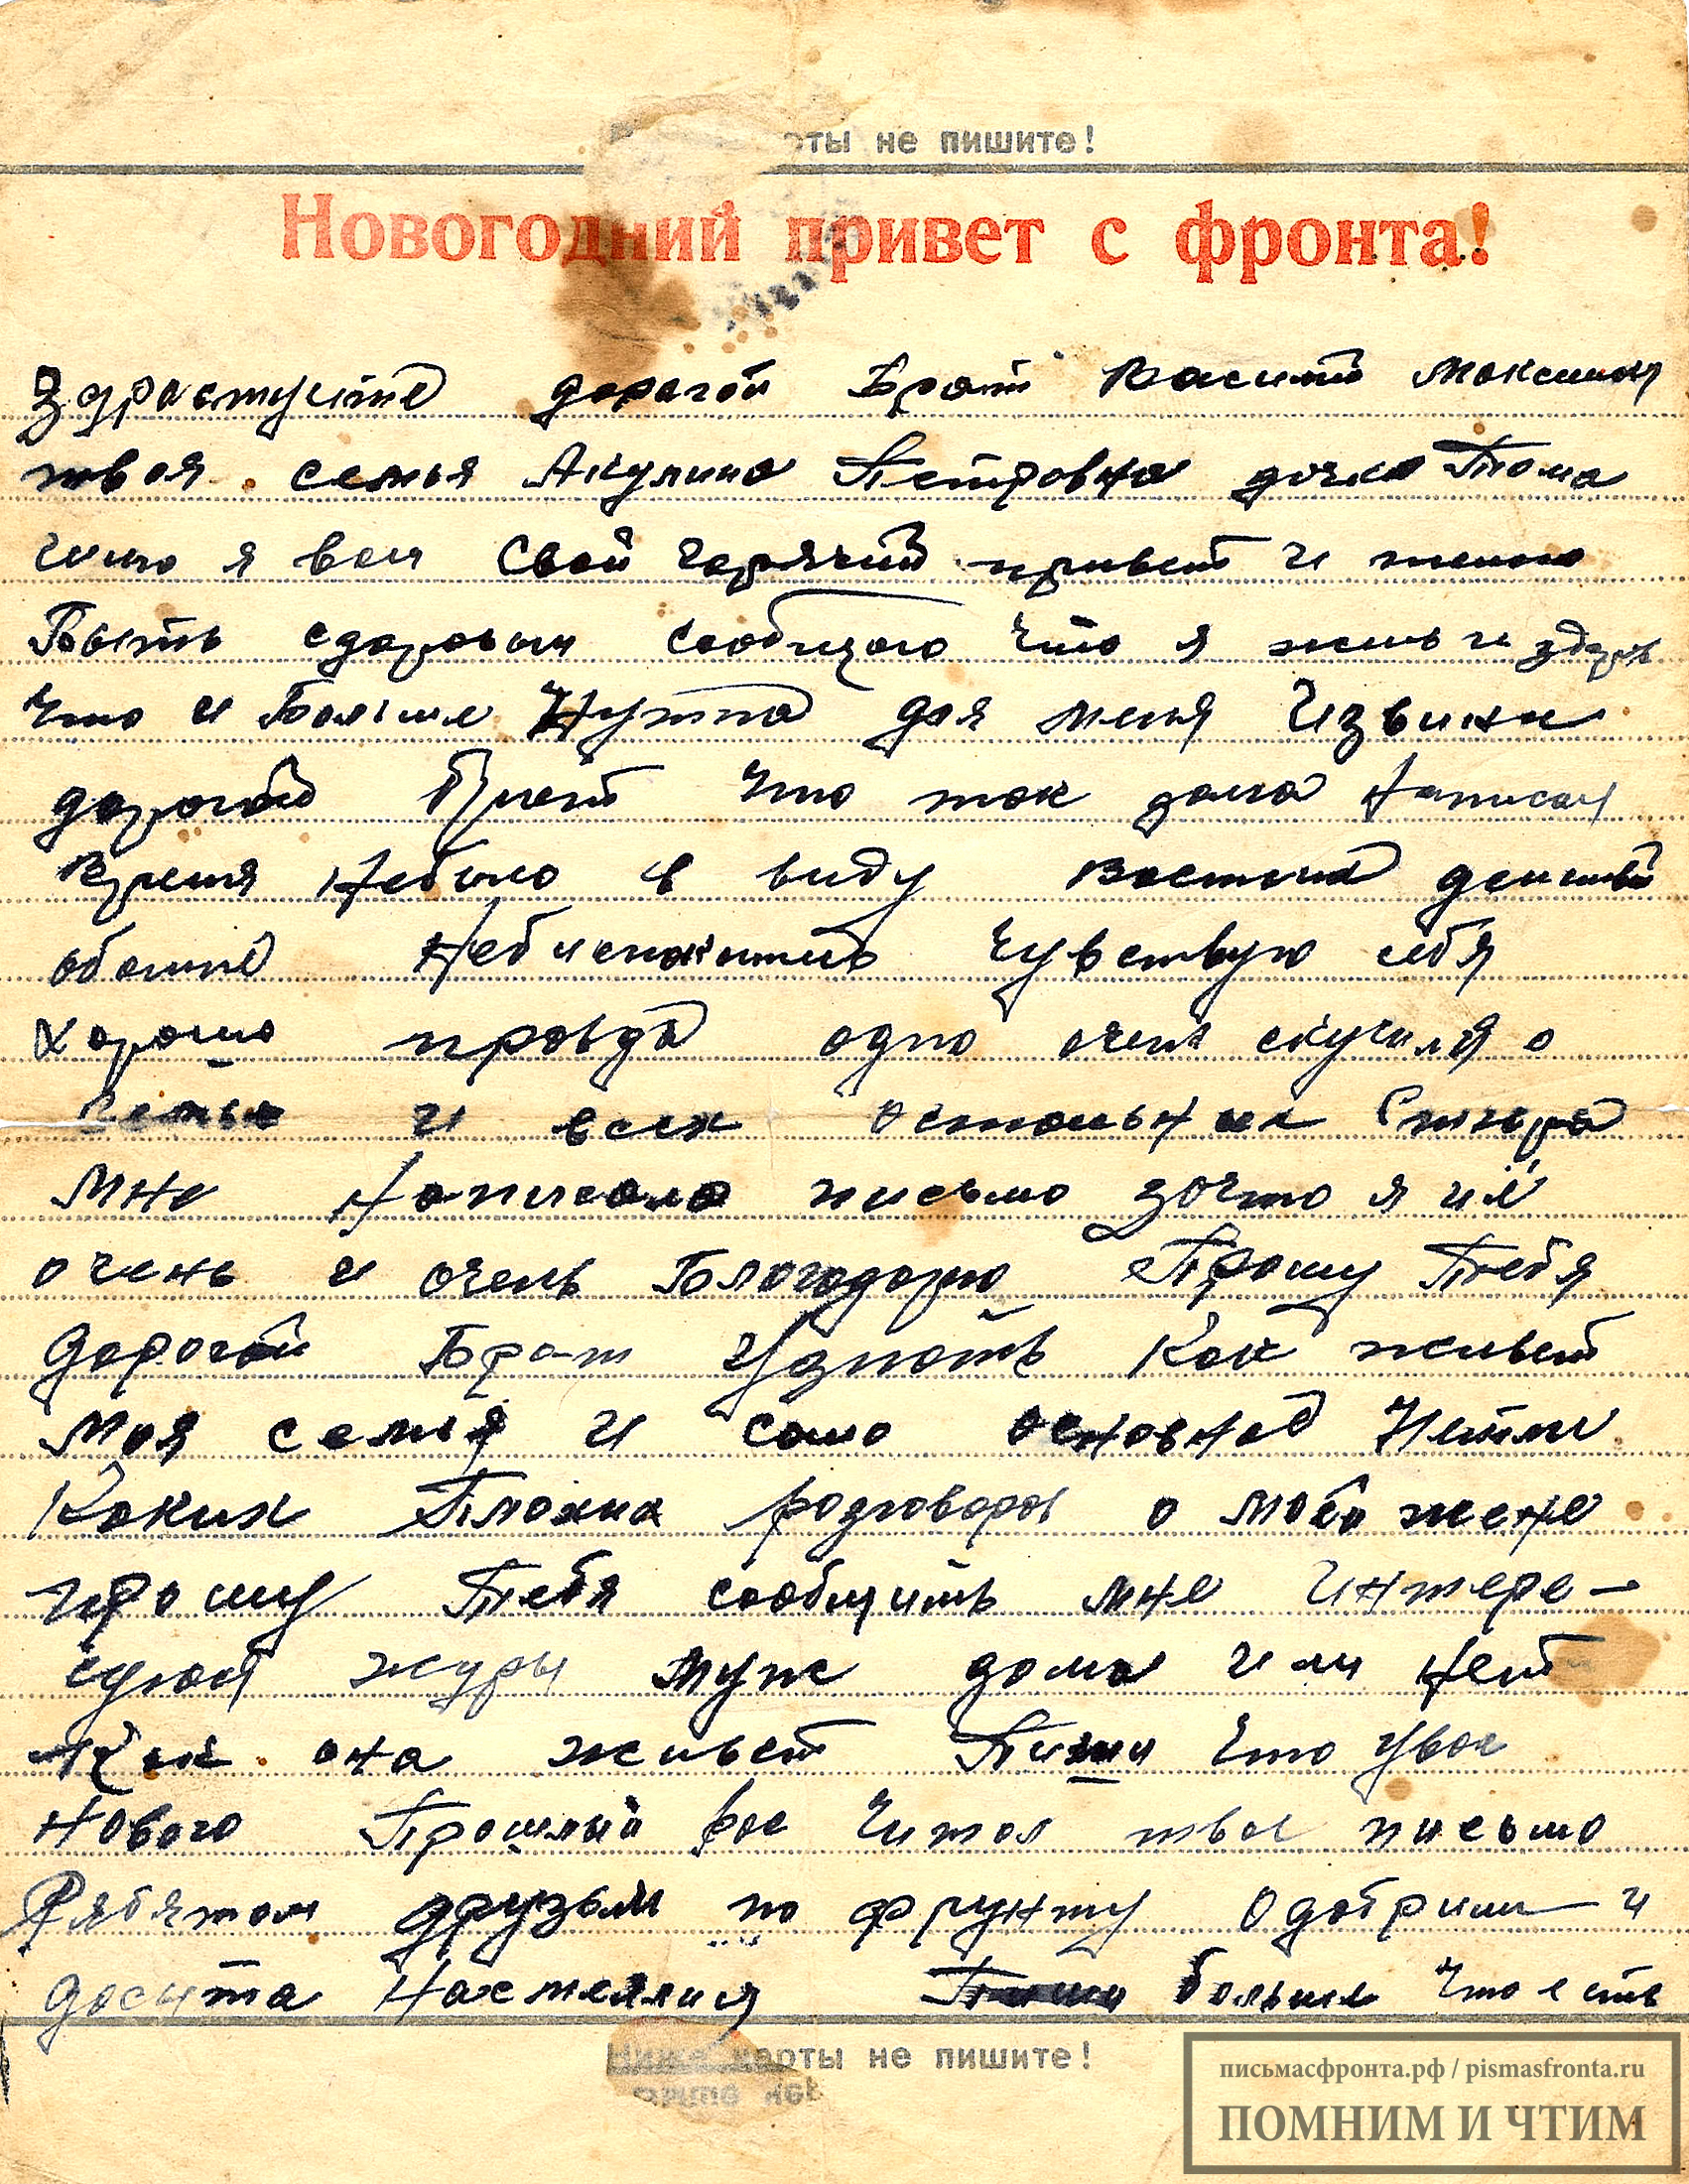 рты не пишите!
Новогодний привет с фронта!
Здраствуите дорогой Брат Василий Максимо
твоя семья Акулина Петровна дочка Тома
я вам свой горячий привет и желаю
Быть сдоровым сообщаю что я жив и здоров
что и Больше Нужна для меня Извини
дорогой Брат что так долга Написал
Время Небыло в виду
Чувствую себя
хорошо правда одно очень скучился о
семье и всех остольных
мне Написала письмо зачто я её
очень и очень Благодорю Прошу Тебя
дорогой Брат Узнать Как живет
Моя семья и само основное Нетли
Каких Плохих розговоров о моей жене
прошу Тебя сообщить мне Интере-
муж дома или Нет
Как она живет Пиши что увас
Нового Прошлый рас Читал твое письмо
Рябятам друзьям по фрунту одобрили и
досыта Нахмеялися Пиши больше что есть
Ниже карты не пишите!
письмасфронта.рф / pismasfronta.ru
ПОМНИМ И ЧТИМ